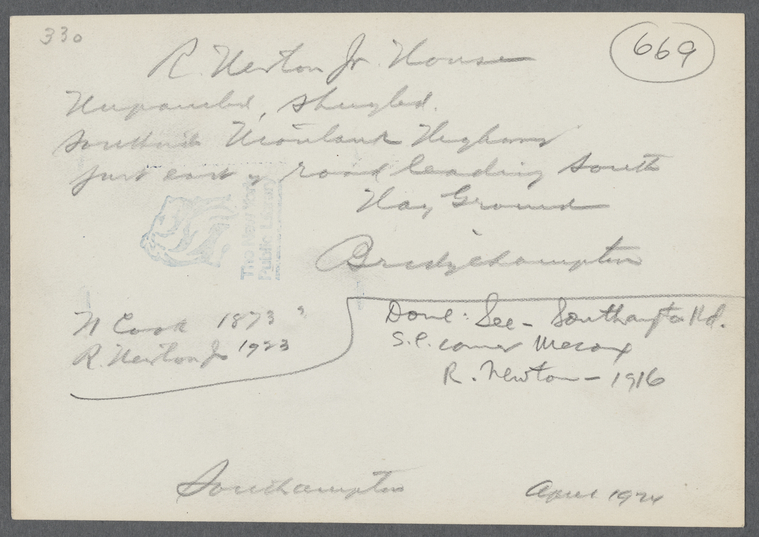 330
669
R. Newton Jr. House
Unpainted, shingled.
Southside Montauk Highway
just east of road leading South
Hay Ground
Bridgehampton
The New York
Public Library
N Cook 1873
R. Newton Jr 1923
Done: See - Southampton Rd.
S.E. corner Mecox
R. Newton - 1916
Southampton
April 1924